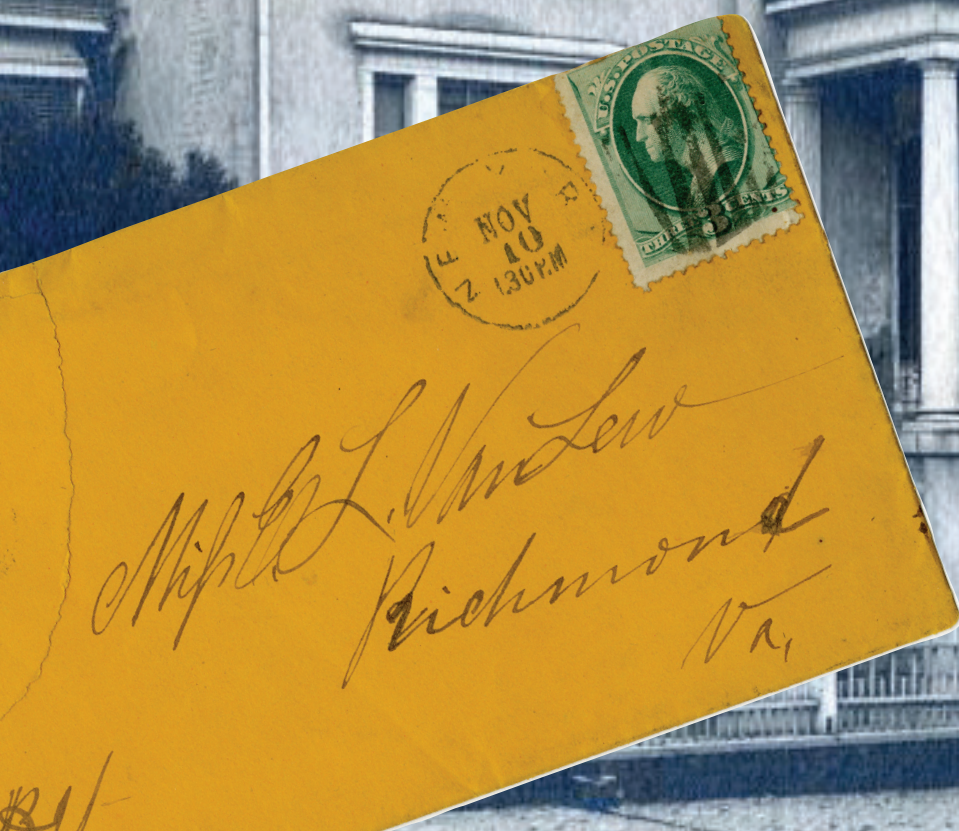 U.S. POSTAGE
THREE 3 CENTS
NEW Y
NOV
10
1.30 P.M
Miss E. L. Van Lew
Richmond
Va.